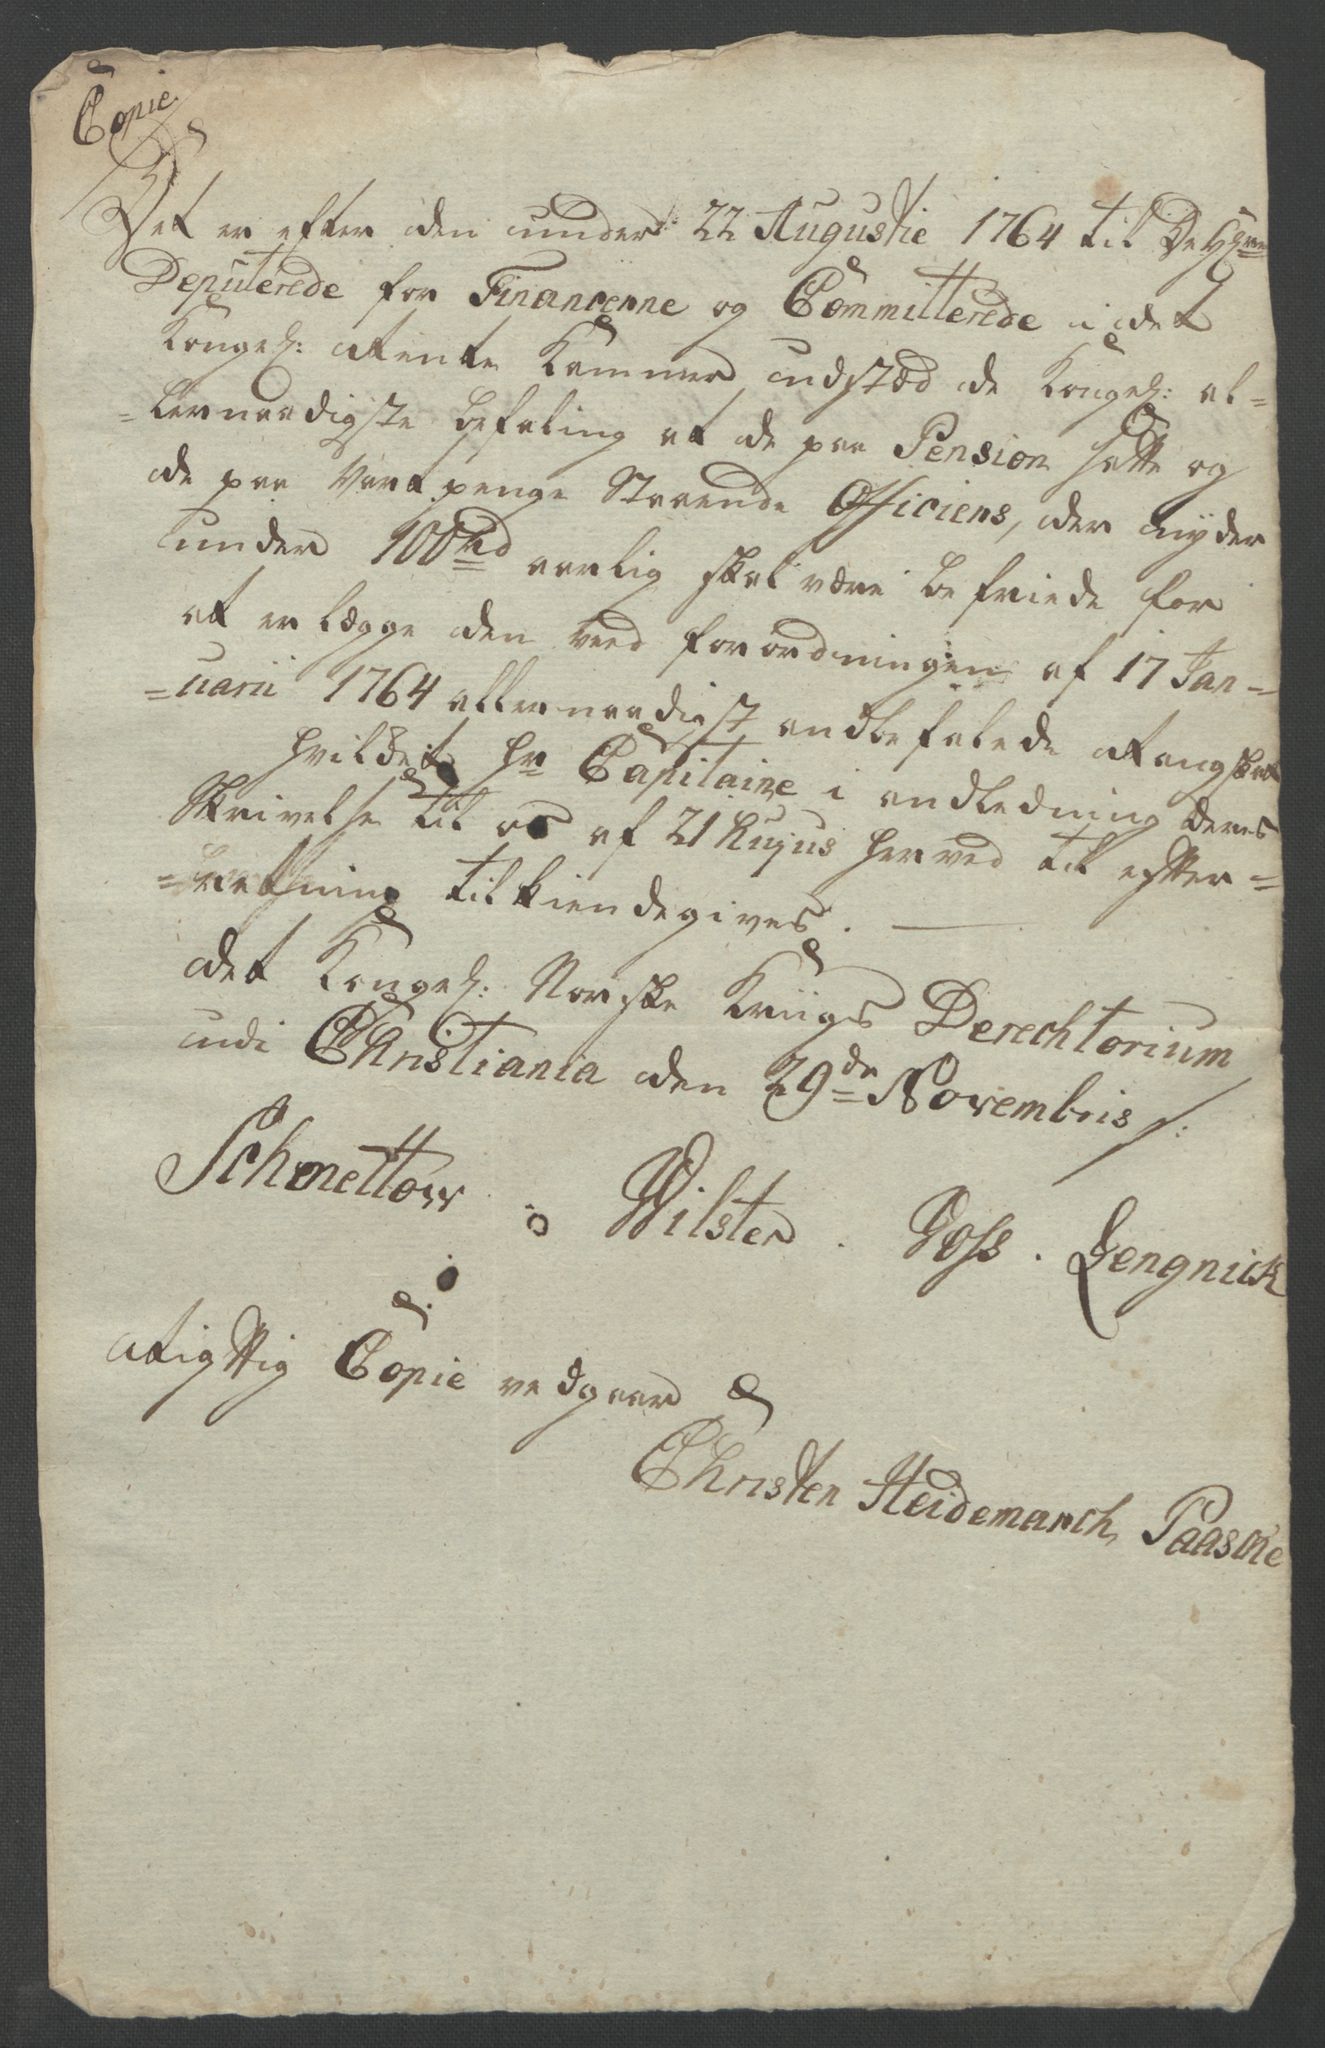 Copie.
Det er efter den under 22 Augustie 1764 til De H:rrer
Deputerede for Financerne og Committerede i det
Kongel: Rente Kammer udstæd de Kongel: al-
-lernaadigste befaling at de paa Pension satte og
de paa Vartpenge Staaende Officiers, der nyder
under 100 rd aarlig skal være befriede for
at erlægge den ved forordningen af 17 Jan-
-uarii 1764 allernaadigst anbefalede Rangskat
hvilket hr Capitaine i andledning Deres
Skrivelse til os af 21 hujus herved til efter-
-retning tilkiendegives.
det Kongel: Norske Kriigs Derechtorium
udi Christiania den 29de Novembris
Schmettow Wilster . Voss . Lengnick
Rigttig Copie vedgaar
Christen Heidemarch Paasche